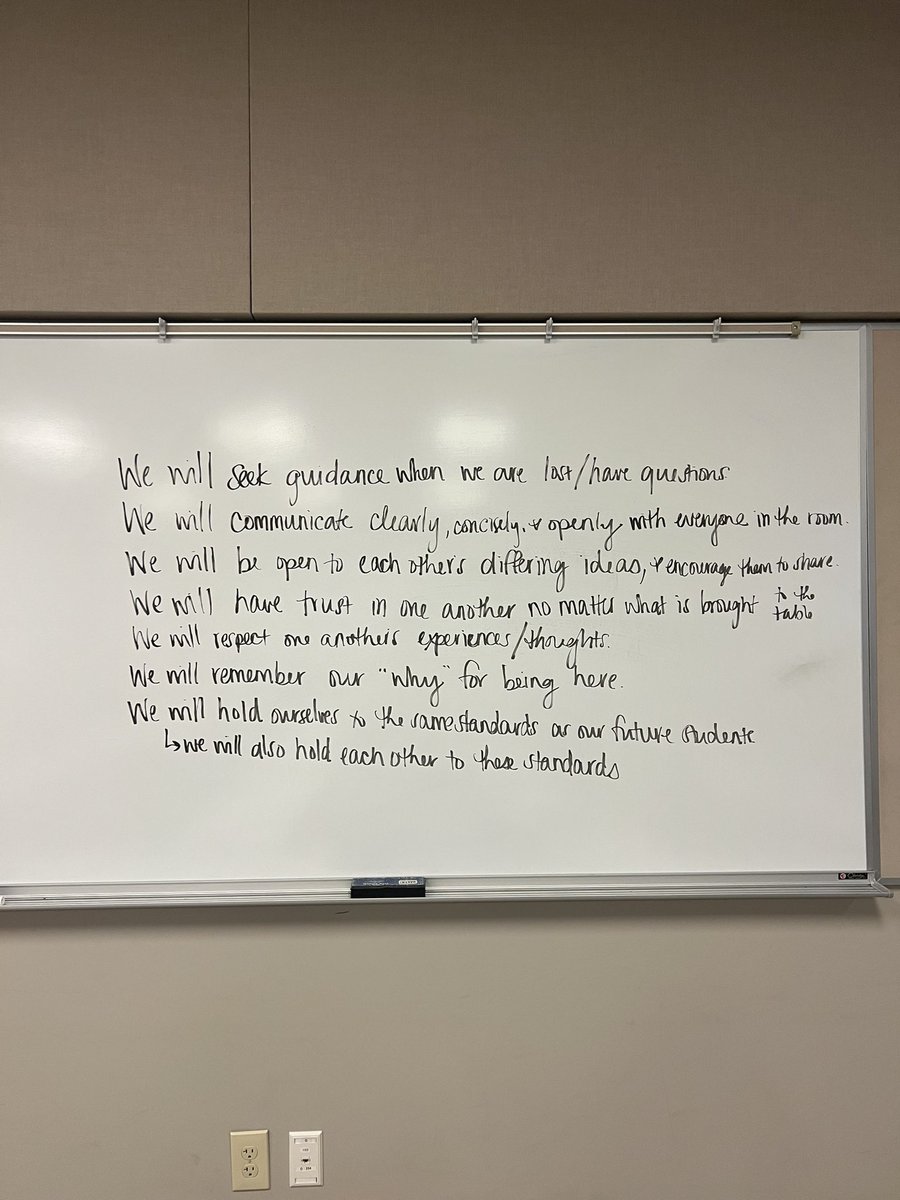 We will seek guidance when we are lost/have questions.
We will communicate clearly, concisely, & openly with everyone in the room.
We will be open to each other's differing ideas, & encourage them to share.
We will have trust in one another no matter what is brought to the table
We will respect one another's experiences/thoughts.
We will remember our "why" for being here.
We will hold ourselves to the same standards as our future students
↳ we will also hold each other to these standards